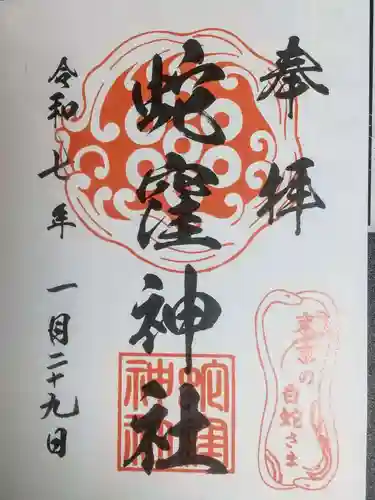 奉拝
蛇窪神社
令和七年 一月二十九日
蛇窪
神社
東京の
白蛇さま